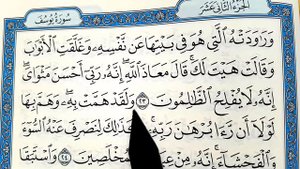 الجزء الثاني عشر
سورة يوسف
وَرَاوَدَتْهُ الَّتِي هُوَ فِي بَيْتِهَا عَن نَّفْسِهِ وَغَلَّقَتِ الْأَبْوَابَ
وَقَالَتْ هَيْتَ لَكَ قَالَ مَعَاذَ اللَّهِ إِنَّهُ رَبِّي أَحْسَنَ مَثْوَايَ
إِنَّهُ لَا يُفْلِحُ الظَّالِمُونَ ٢٣ وَلَقَدْ هَمَّتْ بِهِ وَهَمَّ بِهَا
لَوْلَا أَن رَّءَا بُرْهَانَ رَبِّهِ كَذَالِكَ لِنَصْرِفَ عَنْهُ السُّوءَ
وَالْفَحْشَاءَ إِنَّهُ مِنْ الْمُخْلَصِينَ ٢٤ وَاسْتَبَقَا